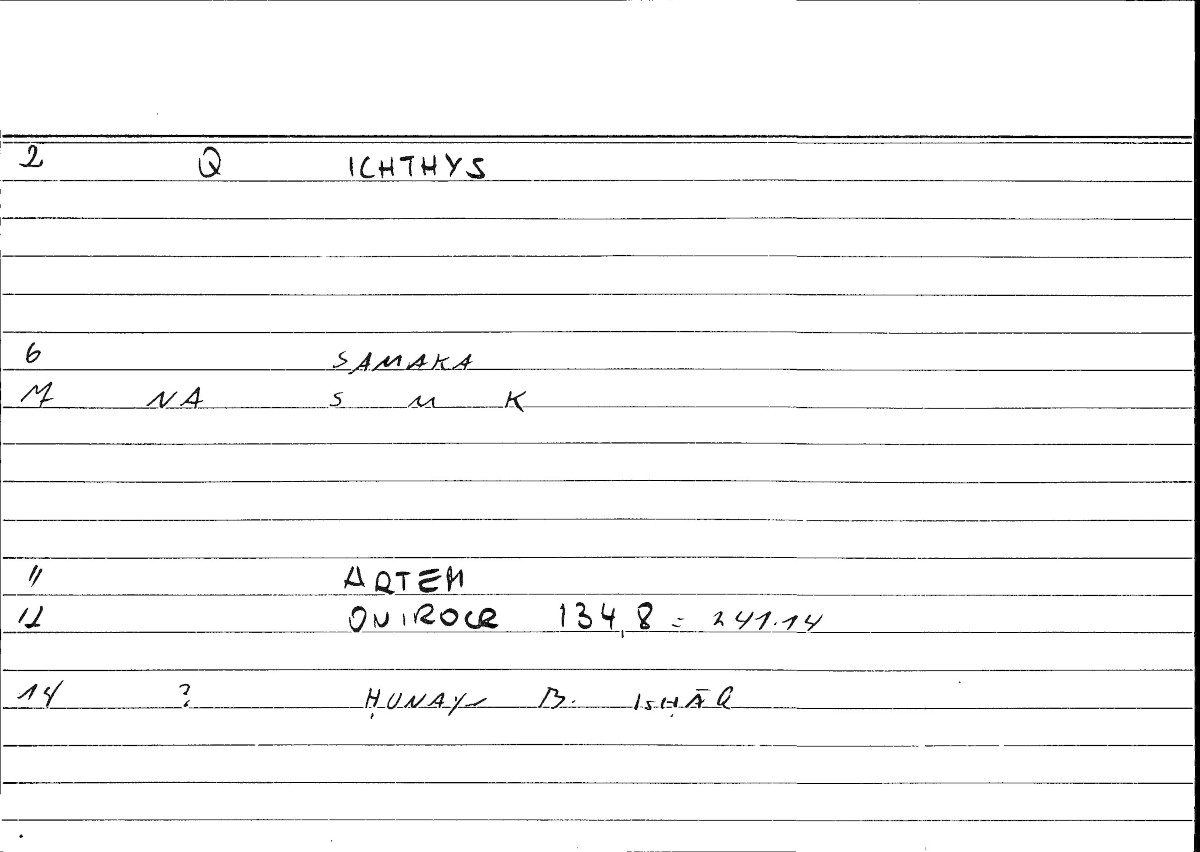 2 Q ICHTHYS
6 SAMAKA
7 NA S M K
11 ARTEM
12 ONIROCR 134,8 = 241.14
14 ? ḤUNAYN B. ISḤĀQ